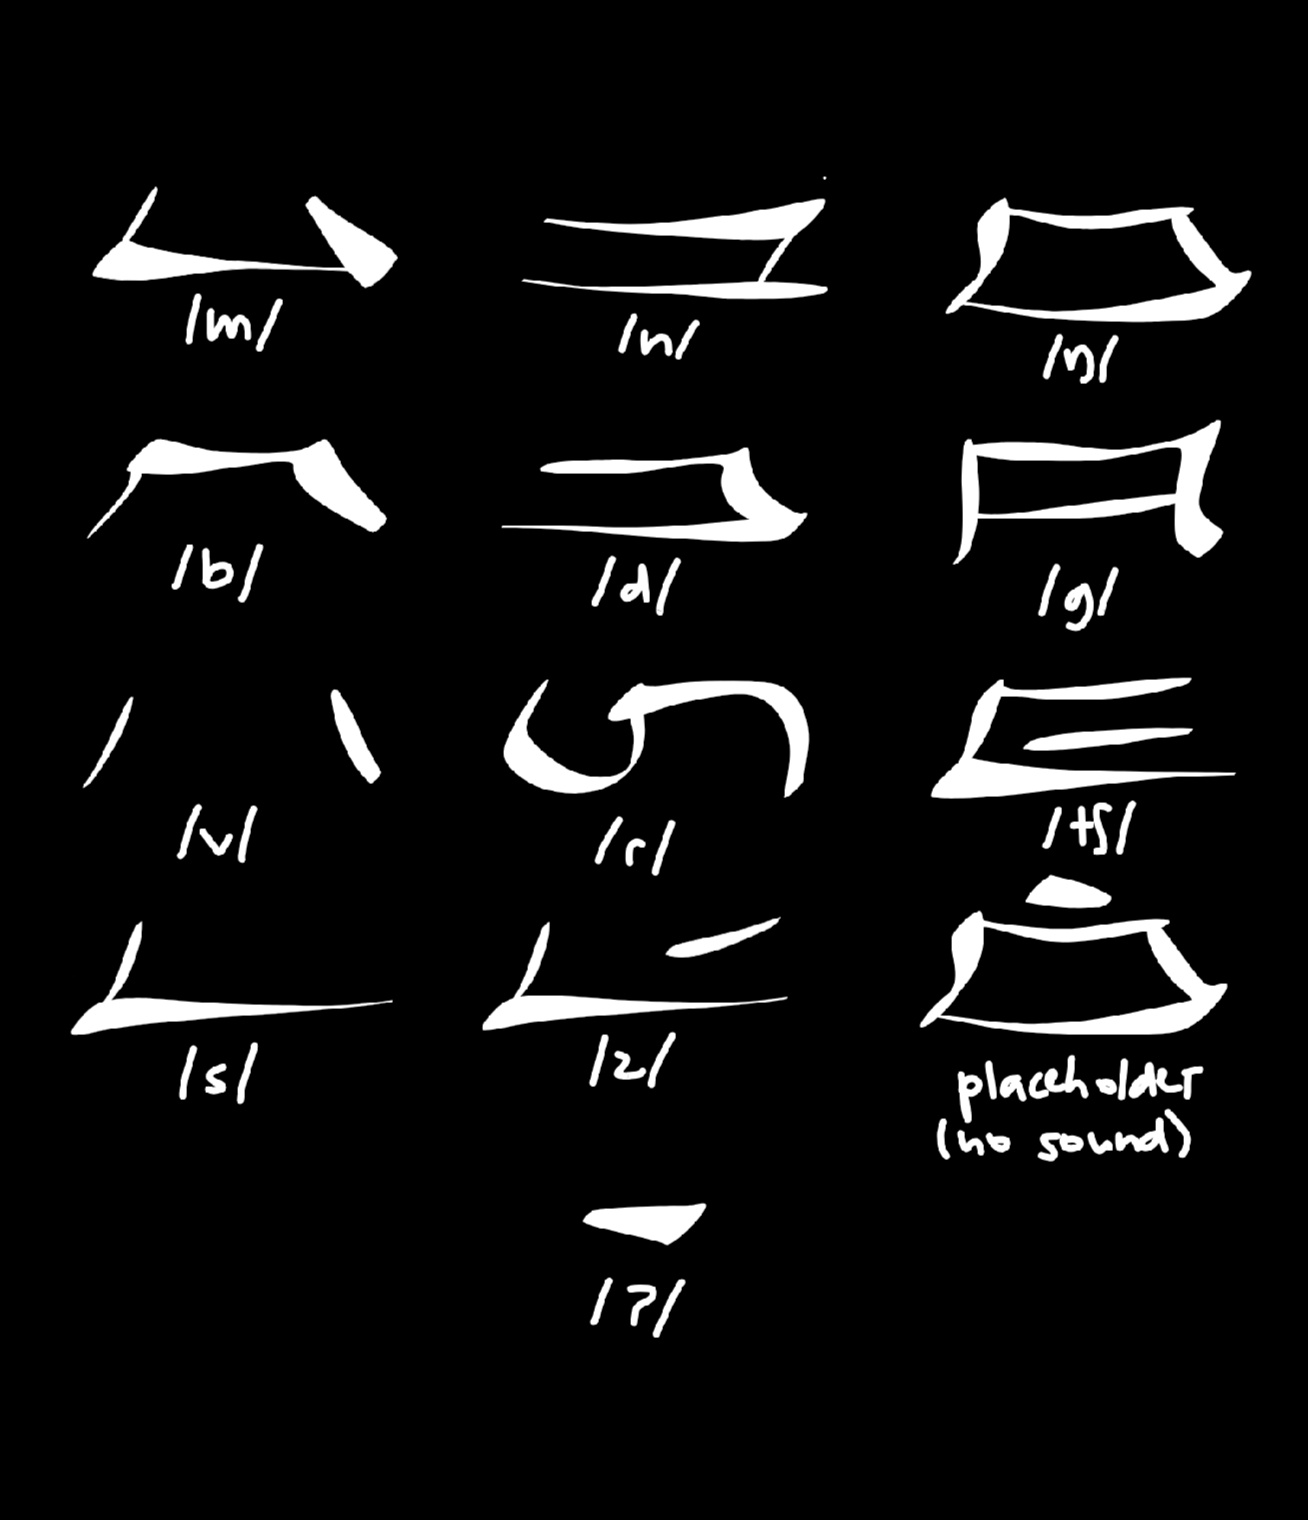 /m/ /n/ /ŋ/
/b/ /d/ /g/
/v/ /r/ /tʃ/
/s/ /z/ placeholder
(no sound)
/ʔ/